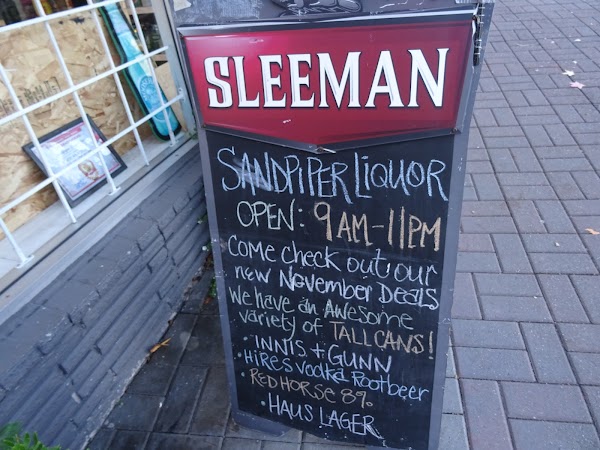 SLEEMAN
SANDPIPER LIQUOR
OPEN: 9AM-11PM
Come check out our
new November Deals
We have an Awesome
variety of TALL CANS!
• INNIS + GUNN
• Hires vodka Rootbeer
• RED HORSE 8%
• HAUS LAGER